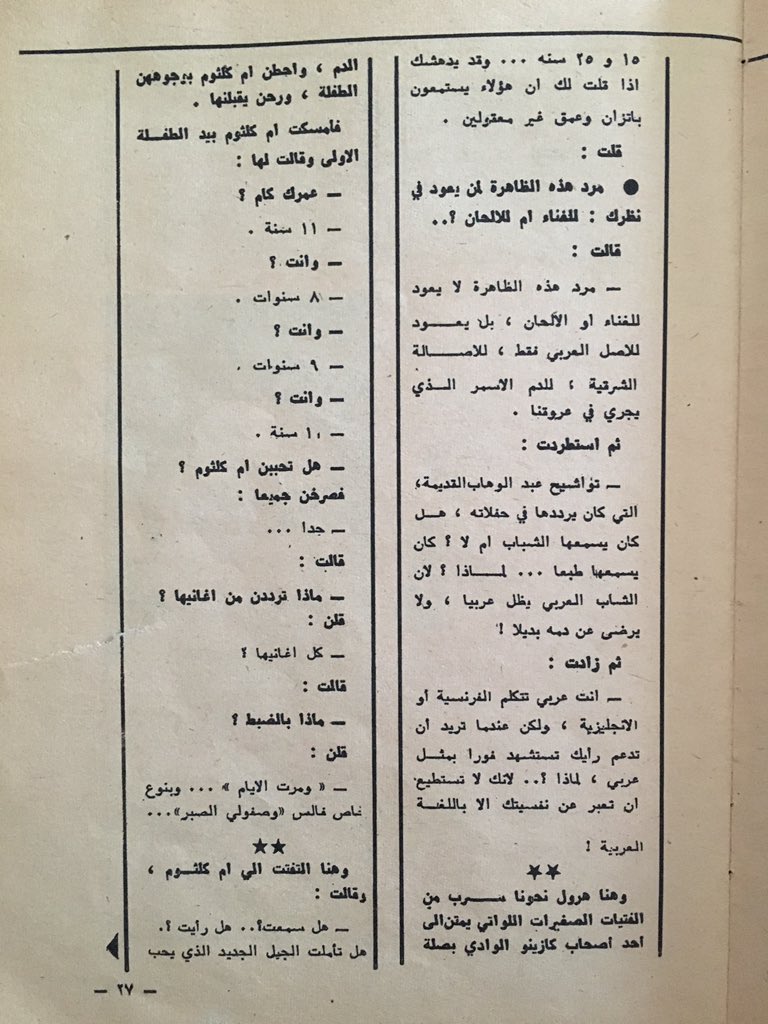 ١٥ و ٢٥ سنه ... وقد يدهشك
اذا قلت لك ان هؤلاء يستمعون
باتزان وعمق غير معقولين .
قلت :
● مرد هذه الظاهرة لمن يعود في
نظرك : للغناء ام للالحان ؟..
قالت :
— مرد هذه الظاهرة لا يعود
للغناء او الألحان ، بل يعـــود
للاصل العربي فقط ، للاصـــالة
الشرقية ، للدم الاسمر الــذي
يجري في عروقنا .
ثم استطردت :
— تواشيح عبد الوهاب القديمة،
التي كان يرددها في حفلاته ، هــل
كان يسمعها الشباب ام لا ؟ كان
يسمعها طبعا ... لمــاذا ؟ لان
الشاب العربي يظل عربيا ، ولا
يرضى عن دمه بديلا !
ثم زادت :
— انت عربي تتكلم الفرنسية أو
الانجليزية ، ولكن عندما تريد أن
تدعم رأيك تستشهد فورا بمثــل
عربي ، لماذا ؟.. لانك لا تستطيع
ان تعبر عن نفسيتك الا باللغــة
العربية !
★★
وهنا هرول نحونا ســـرب من
الفتيات الصغيرات اللواتي يمتن الى
أحد اصحاب كازينو الوادي بصلة
الدم ، واحطن ام كلثوم بوجوههن
الطفلة ، ورحن يقبلنها .
فأمسكت ام كلثوم بيد الطفــلة
الاولى وقالت لها :
— عمرك كام ؟
— ١١ سنة .
— وانت ؟
— ٨ سنوات .
— وانت ؟
— ٩ سنوات .
— وانت ؟
— ١٠ سنة .
— هل تحبين ام كلثوم ؟
فصرخن جميعا :
— جدا ...
قالت :
— ماذا ترددن من اغانيها ؟
قلن :
— كل اغانيها ؟
قالت :
— ماذا بالضبط ؟
قلن :
— « ومرت الايام » ... وبنوع
خاص فالس «وصفولي الصبر»...
★★
وهنا التفتت الي ام كلثــوم ،
وقالت :
— هل سمعت؟.. هل رأيت ؟.
هل تأملت الجيل الجديد الذي يحب
— ٢٧ —